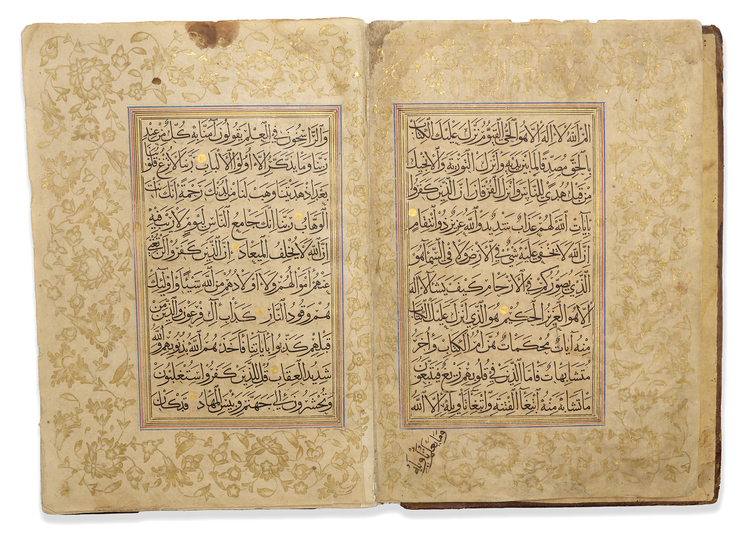 الم الله لا اله الا هو الحي القيوم نزل عليك الكتاب
بالحق مصدقا لما بين يديه وانزل التورية والانجيل
من قبل هدى للناس وانزل الفرقان ان الذين كفروا
بايات الله لهم عذاب شديد والله عزيز ذو انتقام
ان الله لا يخفى عليه شئ في الارض ولا في السماء هو
الذي يصوركم في الارحام كيف يشاء لا اله
الا هو العزيز الحكيم هو الذي انزل عليك الكتاب
منه ايات محكمات هن ام الكتاب واخر
متشابهات فاما الذين في قلوبهم زيغ فيتبعون
ما تشابه منه ابتغاء الفتنة وابتغاء تاويله الا الله
وما يعلم تاويله
والراسخون في العلم يقولون امنا به كل من عند
ربنا وما يذكر الا اولوا الالباب ربنا لا تزغ قلوبنا
بعد اذ هديتنا وهب لنا من لدنك رحمة انك انت
الوهاب ربنا انك جامع الناس ليوم لا ريب فيه
ان الله لا يخلف الميعاد ان الذين كفروا لن تغني
عنهم اموالهم ولا اولادهم من الله شيئا واولئك
هم وقود النار كداب ال فرعون والذين من
قبلهم كذبوا باياتنا فاخذهم الله بذنوبهم والله
شديد العقاب قل للذين كفروا ستغلبون
وتحشرون الى جهنم وبئس المهاد قد كان